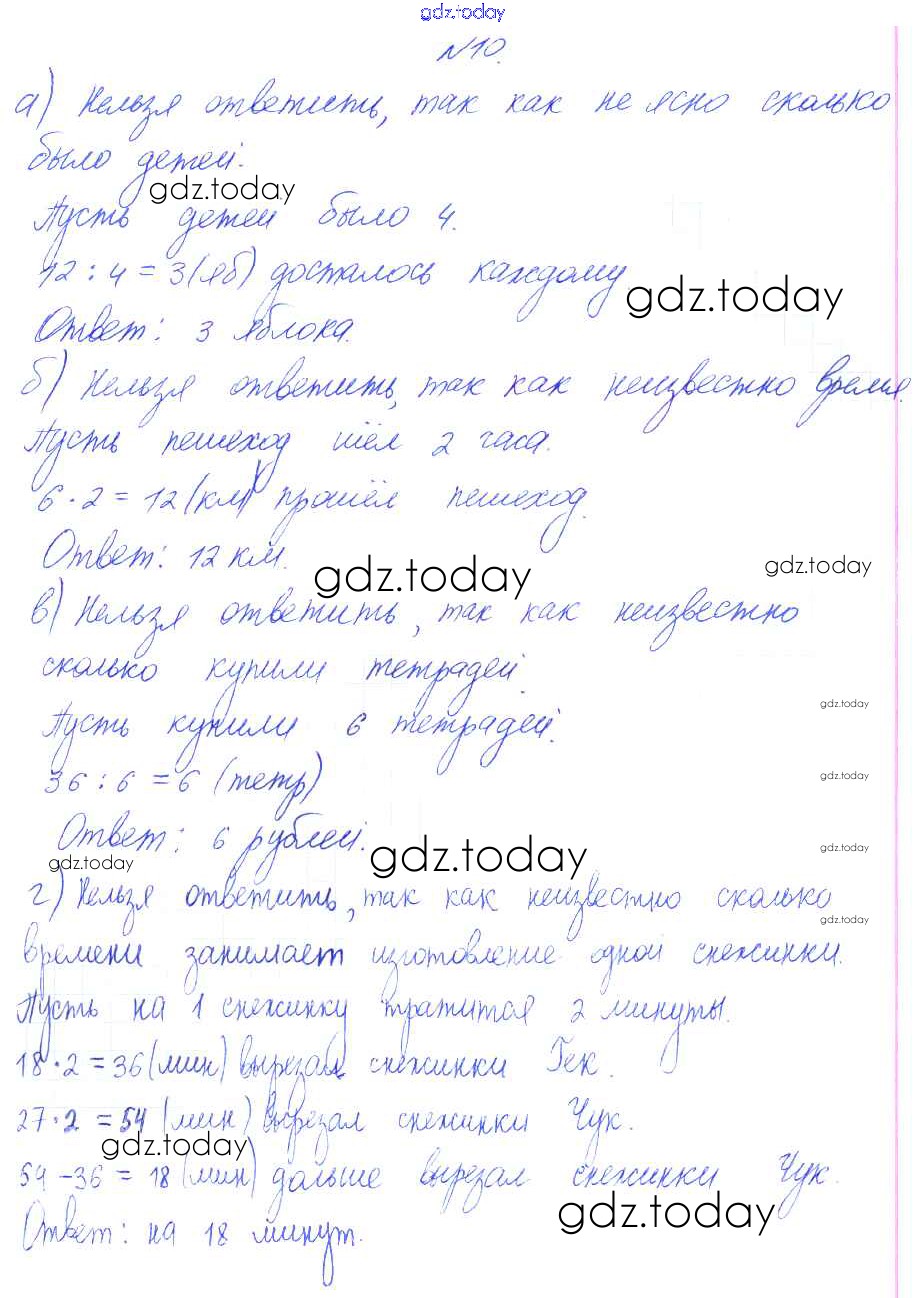 gdz.today
№10.
а) Нельзя ответить, так как не ясно сколько
было детей.
gdz.today
Пусть детей было 4.
12 : 4 = 3 (яб) досталось каждому
gdz.today
Ответ: 3 яблока.
б) Нельзя ответить, так как неизвестно время.
Пусть пешеход шёл 2 часа.
6 · 2 = 12 (км) прошёл пешеход.
Ответ: 12 км.
gdz.today
gdz.today
в) Нельзя ответить, так как неизвестно
сколько купили тетрадей.
gdz.today
Пусть купили 6 тетрадей.
36 : 6 = 6 (тетр)
gdz.today
Ответ: 6 рублей.
gdz.today
gdz.today
gdz.today
г) Нельзя ответить, так как неизвестно сколько
gdz.today
времени занимает изготовление одной снежинки.
Пусть на 1 снежинку тратится 2 минуты.
18 · 2 = 36 (мин) вырезал снежинки Гек.
27 · 2 = 54 (мин) вырезал снежинки Чук.
gdz.today
54 - 36 = 18 (мин) дальше вырезал снежинки Чук.
gdz.today
Ответ: на 18 минут.